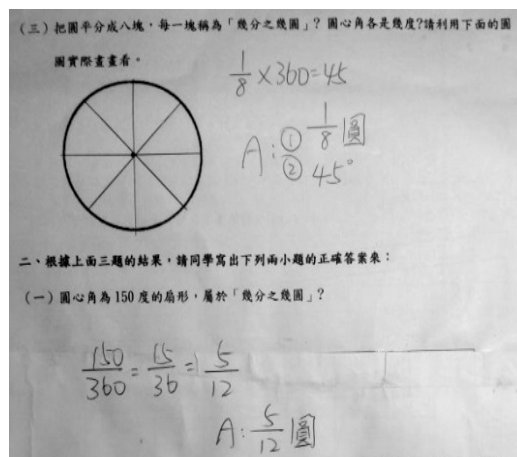 (三)把圓平分成八塊，每一塊稱為「幾分之幾圓」？圓心角各是幾度?請利用下面的圓
圖實際畫畫看。
1/8×360=45
A:① 1/8圓
② 45°
二、根據上面三題的結果，請同學寫出下列兩小題的正確答案來：
(一)圓心角為150度的扇形，屬於「幾分之幾圓」？
150/360=15/36=5/12
A:5/12圓